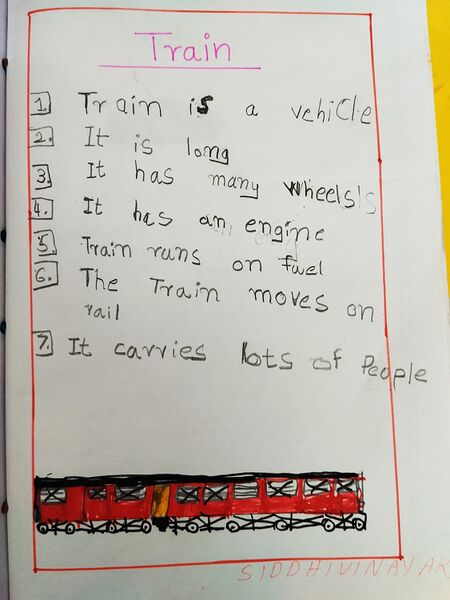 Train
1. Train is a vehicle
2. It is long
3. It has many wheels
4. It has an engine
5. Train runs on fuel
6. The Train moves on
rail
7. It carries lots of People
SIDDHIVINAYAK